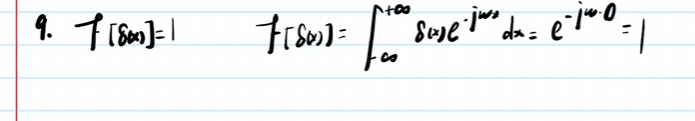 9. F[δ(x)]=1 F[δ(x)]= ∫_{-∞}^{+∞} δ(x)e^{-jωx} dx = e^{-jω·0} = 1